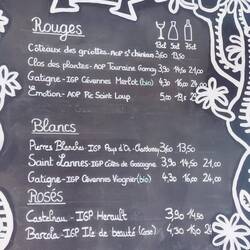 Rouges
12cl 50cl 75cl
Coteaux des griottes - AOP St chinian 3,60 13,50
Clos des plantes - AOP Touraine Gamay 3,90 14,50 21,00
Gatigne - IGP Cévennes Merlot (bio) 4,30 16,00 24,00
Emotion - AOP Pic Saint Loup
Blancs
Pierres Blanche - IGP Pays d'Oc - Chardonnay 3,60 13,50
Saint Lannes - IGP Côtes de Gascogne 3,90 14,50 21,00
Gatigne - IGP Cévennes Viognier (bio) 4,30 16,00 24,00
Rosés
Castelnau - IGP Herault 3,90 14,50
Barcola - IGP Ile de beauté 4,30 16,00